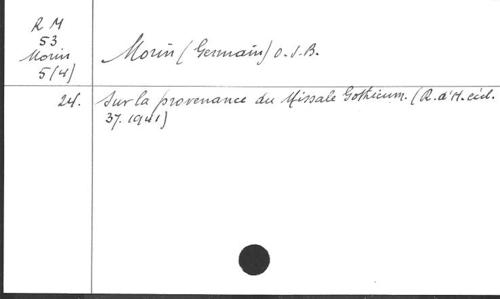 R M
53
Morin
5(4)
Morin (Germain) O.S.B.
24. Sur la provenance du Missale Gothicum. (R. d'H. eccl.
37. 1941)